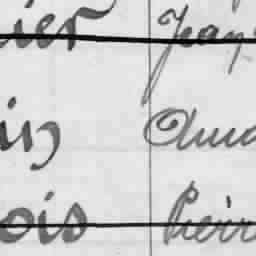 ier Jean
in Ama
ois Pierr